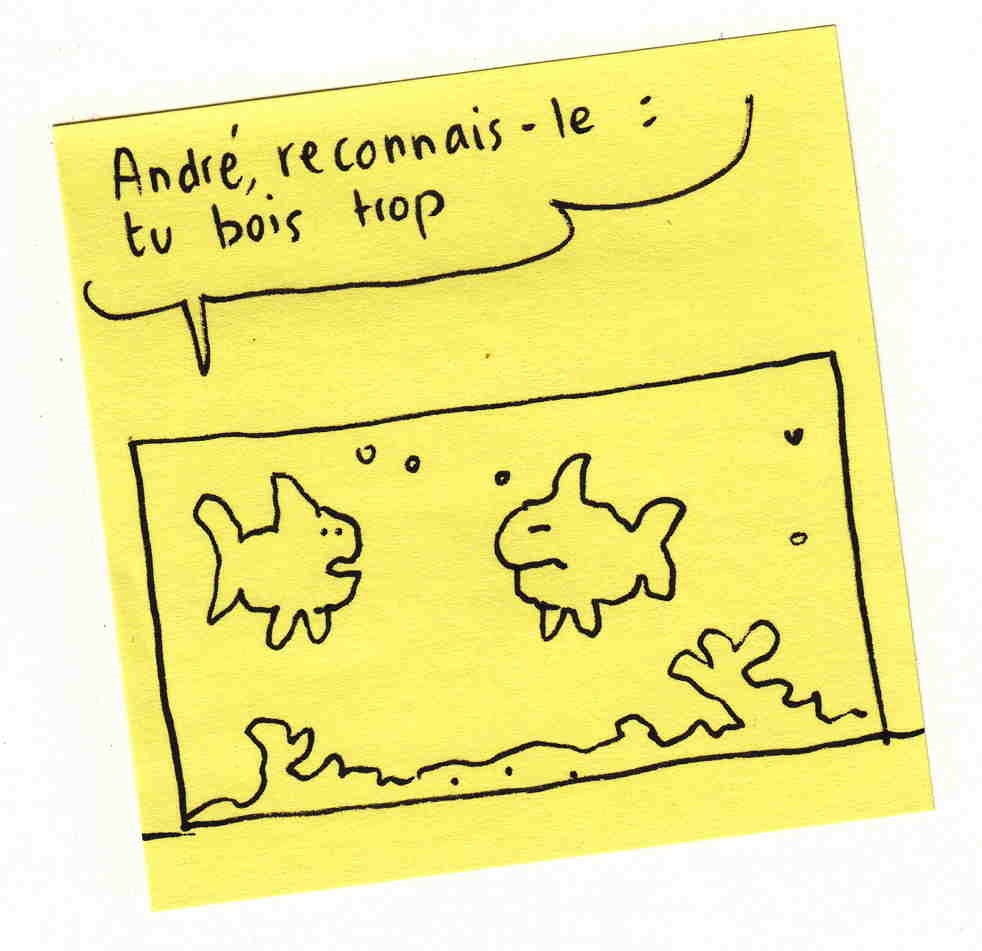 André, reconnais-le :
tu bois trop